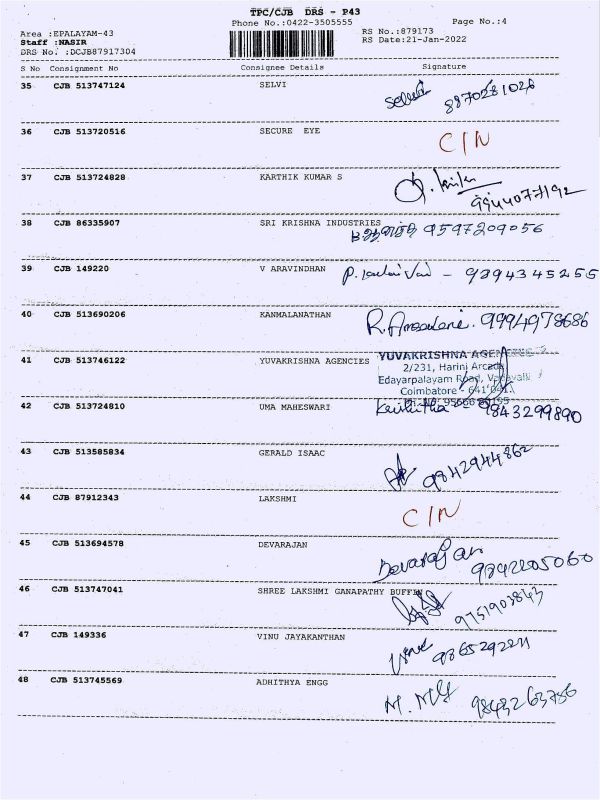 TPC/CJB DRS - P43
Phone No.:0422-3505555 Page No.:4
Area :EPALAYAM-43 RS No.:879173
Staff :NASIR RS Date:21-Jan-2022
DRS No. :DCJB87917304
S No Consignment No Consignee Details Signature
35 CJB 513747124 SELVI
8870281026
36 CJB 513720516 SECURE EYE
C/N
37 CJB 513724828 KARTHIK KUMAR S
9944077192
38 CJB 86335907 SRI KRISHNA INDUSTRIES
9597209056
39 CJB 149220 V ARAVINDHAN
- 9394345255
40 CJB 513690206 KANMALANATHAN
9994978686
41 CJB 513746122 YUVAKRISHNA AGENCIES YUVAKRISHNA AGENCIES
2/231, Harini Arcade
Edayarpalayam Road,
Coimbatore - 641 041.
42 CJB 513724810 UMA MAHESWARI
9843299890
43 CJB 513585834 GERALD ISAAC
9842944862
44 CJB 87912343 LAKSHMI
C/N
45 CJB 513694578 DEVARAJAN
Devarajan
46 CJB 513747041 SHREE LAKSHMI GANAPATHY BUFFIN
9751903843
47 CJB 149336 VINU JAYAKANTHAN
48 CJB 513745569 ADHITHYA ENGG
9843263786